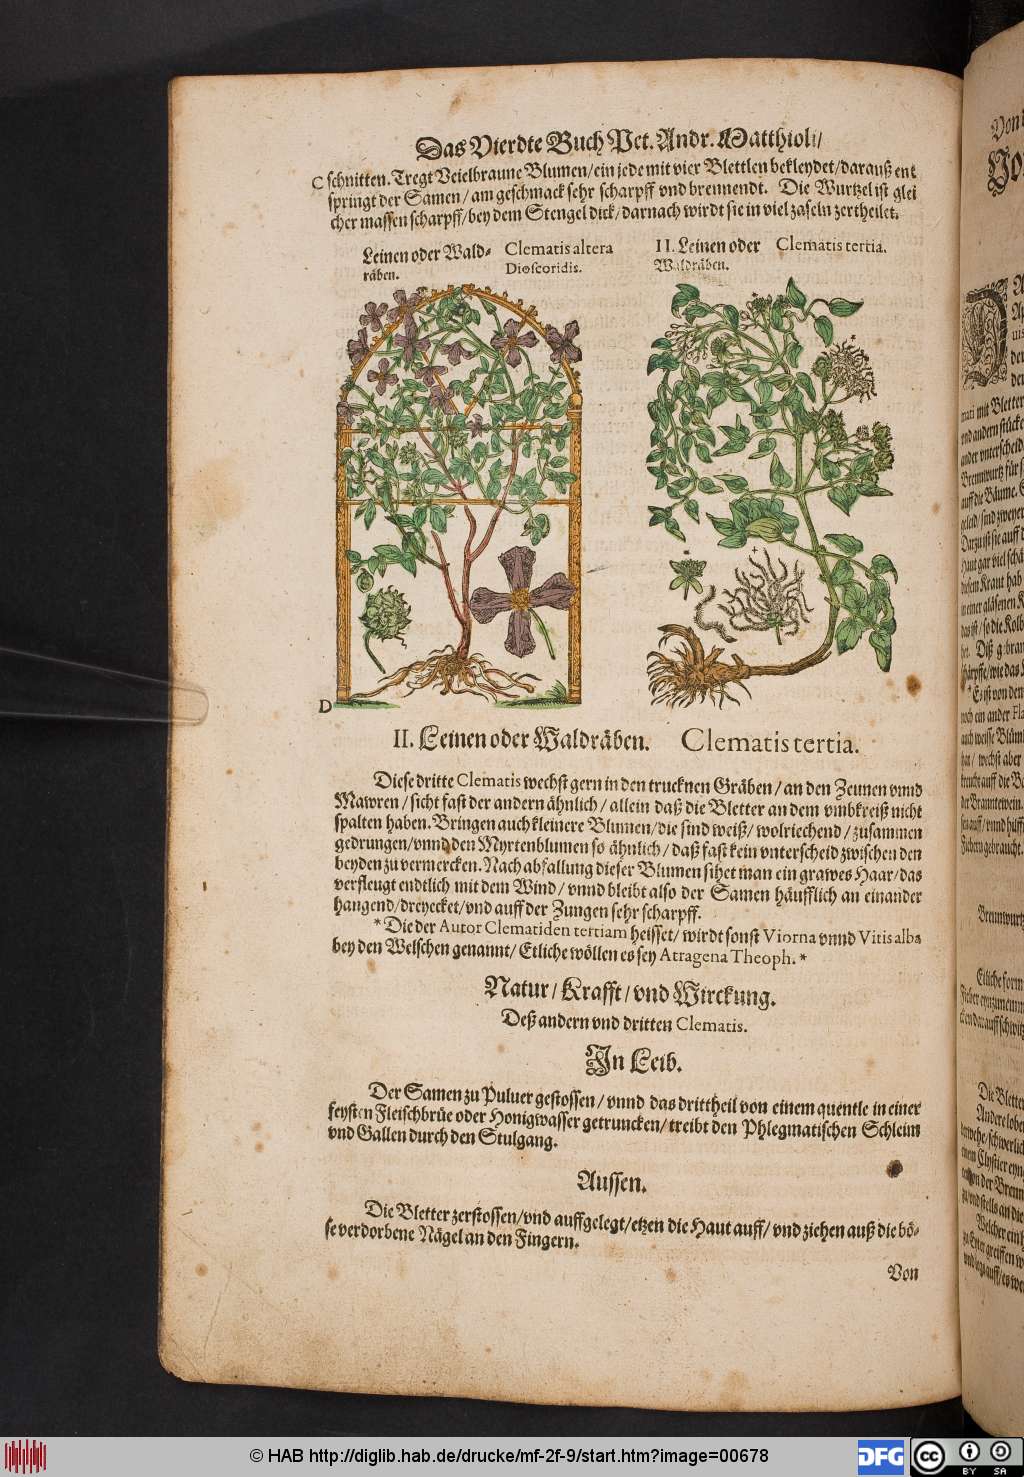 Das Vierdte Buch Pet. Andr. Matthioli/
C schnitten. Tregt Veielbraune Blumen/ein jede mit vier Blettlen bekleydet/darauß ent
springt der Samen/am geschmack sehr scharpff vnd brennendt. Die Wurtzel ist glei
cher massen scharpff/bey dem Stengel dick/darnach wirdt sie in viel zaseln zertheilet.
Leinen oder Wald-
räben.
Clematis altera
Dioscoridis.
II. Leinen oder
Waldräben.
Clematis tertia.
D
II. Leinen oder Waldräben. Clematis tertia.
Diese dritte Clematis wechst gern in den trucknen Gräben/an den Zeunen vnnd
Mawren/sicht fast der andern ähnlich/allein daß die Bletter an dem vmbkreiß nicht
spalten haben. Bringen auch kleinere Blumen/die sind weiß/wolriechend/zusammen
gedrungen/vnnd den Myrtenblumen so ähnlich/daß fast kein vnterscheid zwischen den
beyden zu vermercken. Nach abfallung dieser Blumen sihet man ein grawes Haar/das
verfleugt endtlich mit dem Wind/vnnd bleibt also der Samen häufflich an einander
hangend/dreyecket/vnd auff der Zungen sehr scharpff.
* Die der Autor Clematiden tertiam heisset/wirdt sonst Viorna vnnd Vitis alba
bey den Welschen genannt/Etliche wöllen es sey Atragena Theoph. *
Natur/Krafft/vnd Wirckung.
Deß andern vnd dritten Clematis.
In Leib.
Der Samen zu Puluer gestossen/vnnd das drittheil von einem quentle in einer
feysten Fleischbrüe oder Honigwasser getruncken/treibt den Phlegmatischen Schleim
vnd Gallen durch den Stulgang.
Aussen.
Die Bletter zerstossen/vnd auffgelegt/etzen die Haut auff/vnd ziehen auß die bö-
se verdorbene Nägel an den Fingern.
Von
© HAB http://diglib.hab.de/drucke/mf-2f-9/start.htm?image=00678
DFG
cc
BY SA